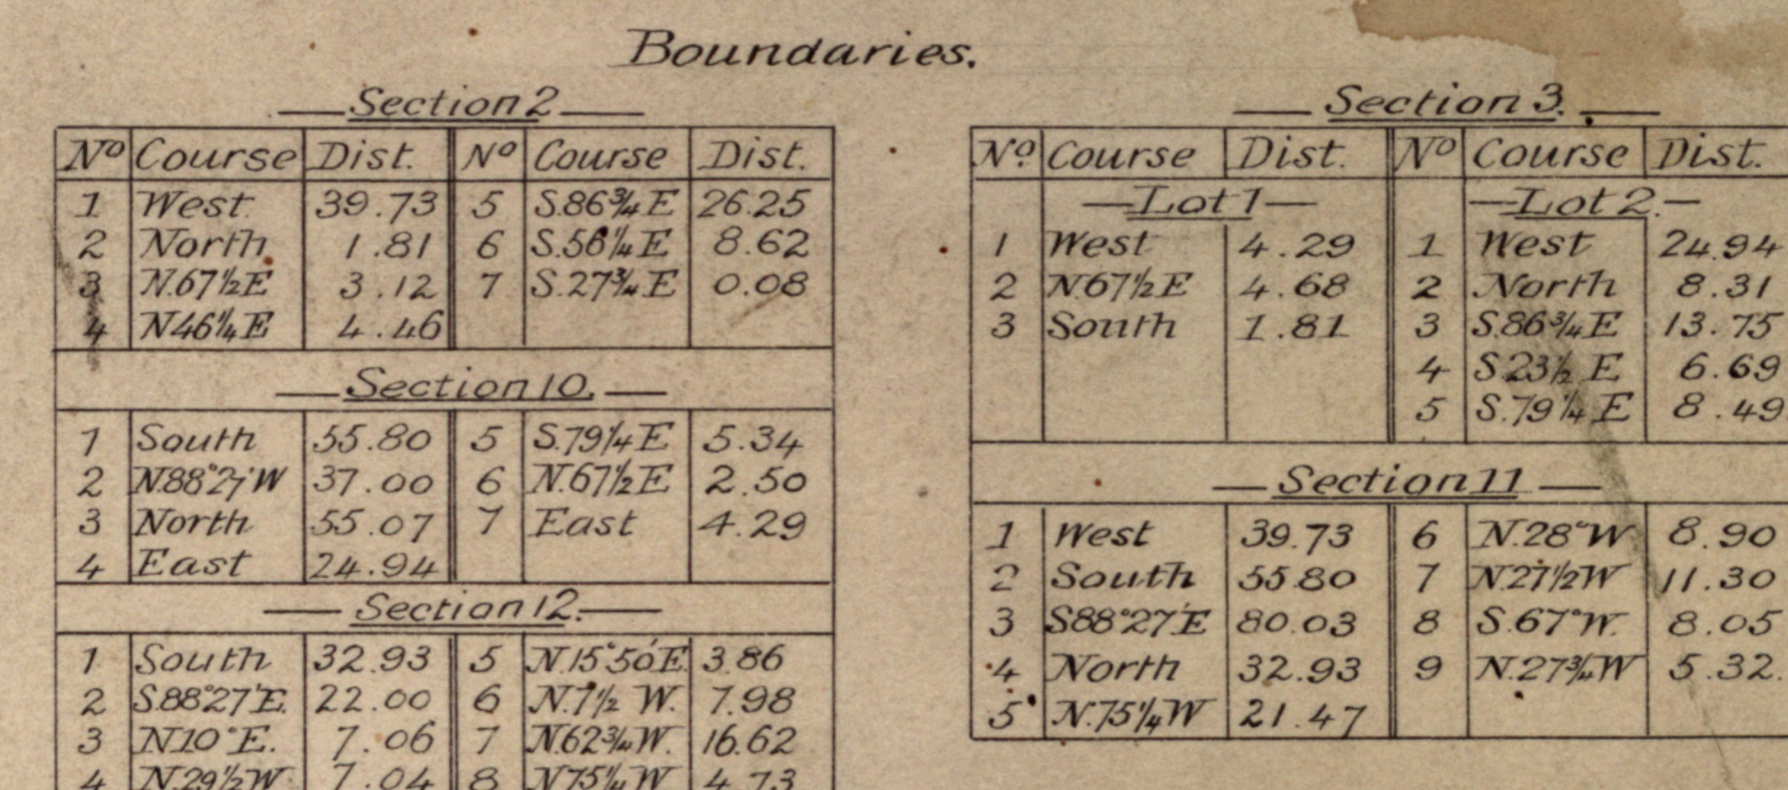 Boundaries.
Section 2
No Course Dist. No Course Dist.
1 West 39.73 5 S.86¾E 26.25
2 North 1.81 6 S.56¼E 8.62
3 N.67½E 3.12 7 S.27¾E 0.08
4 N46¼E 4.46
Section 10.
1 South 55.80 5 S.79¼E 5.34
2 N.88°27'W 37.00 6 N.67½E 2.50
3 North 55.07 7 East 4.29
4 East 24.94
Section 12.
1 South 32.93 5 N.15°50'E. 3.86
2 S.88°27'E. 22.00 6 N.7½ W. 7.98
3 N10°E. 7.06 7 N.62¾W. 16.62
4 N.29½W 7.04 8 N75¼W 4.73
Section 3.
No. Course Dist. No Course Dist.
Lot 1 Lot 2.
1 West 4.29 1 West 24.94
2 N.67½E 4.68 2 North 8.31
3 South 1.81 3 S.86¾E 13.75
4 S23½ E 6.69
5 S.79¼E 8.49
Section 11
1 West 39.73 6 N.28°W 8.90
2 South 55.80 7 N.27½W 11.30
3 S88°27'E 80.03 8 S.67°W. 8.05
4 North 32.93 9 N.27¾W 5.32.
5 N.75¼W 21.47